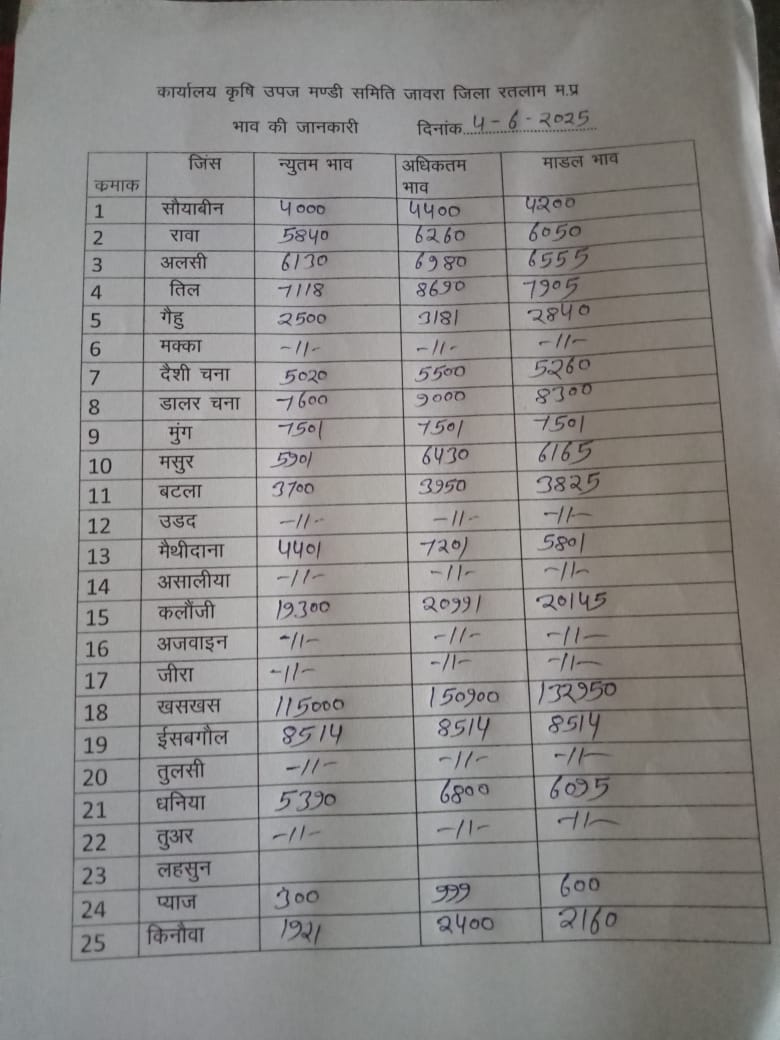 कार्यालय कृषि उपज मण्डी समिति जावरा जिला रतलाम म.प्र
भाव की जानकारी दिनांक 4-6-2025
क्रमाक जिंस न्युतम भाव अधिकतम भाव माडल भाव
1 सौयाबीन 4000 4400 4200
2 रावा 5840 6260 6050
3 अलसी 6130 6980 6555
4 तिल 7118 8690 7905
5 गैहु 2500 3181 2840
6 मक्का -11- -11- -11-
7 दैशी चना 5020 5500 5260
8 डालर चना 7600 9000 8300
9 मुंग 7501 7501 7501
10 मसुर 5901 6430 6165
11 बटला 3700 3950 3825
12 उडद -11- -11- -11-
13 मैथीदाना 4401 7201 5801
14 असालीया -11- -11- -11-
15 कलौंजी 19300 20991 20145
16 अजवाइन -11- -11- -11-
17 जीरा -11- -11- -11-
18 खसखस 115000 150900 132950
19 ईसबगौल 8514 8514 8514
20 तुलसी -11- -11- -11-
21 धनिया 5390 6800 6095
22 तुअर -11- -11- -11-
23 लहसुन
24 प्याज 300 999 600
25 किनौवा 1921 2400 2160